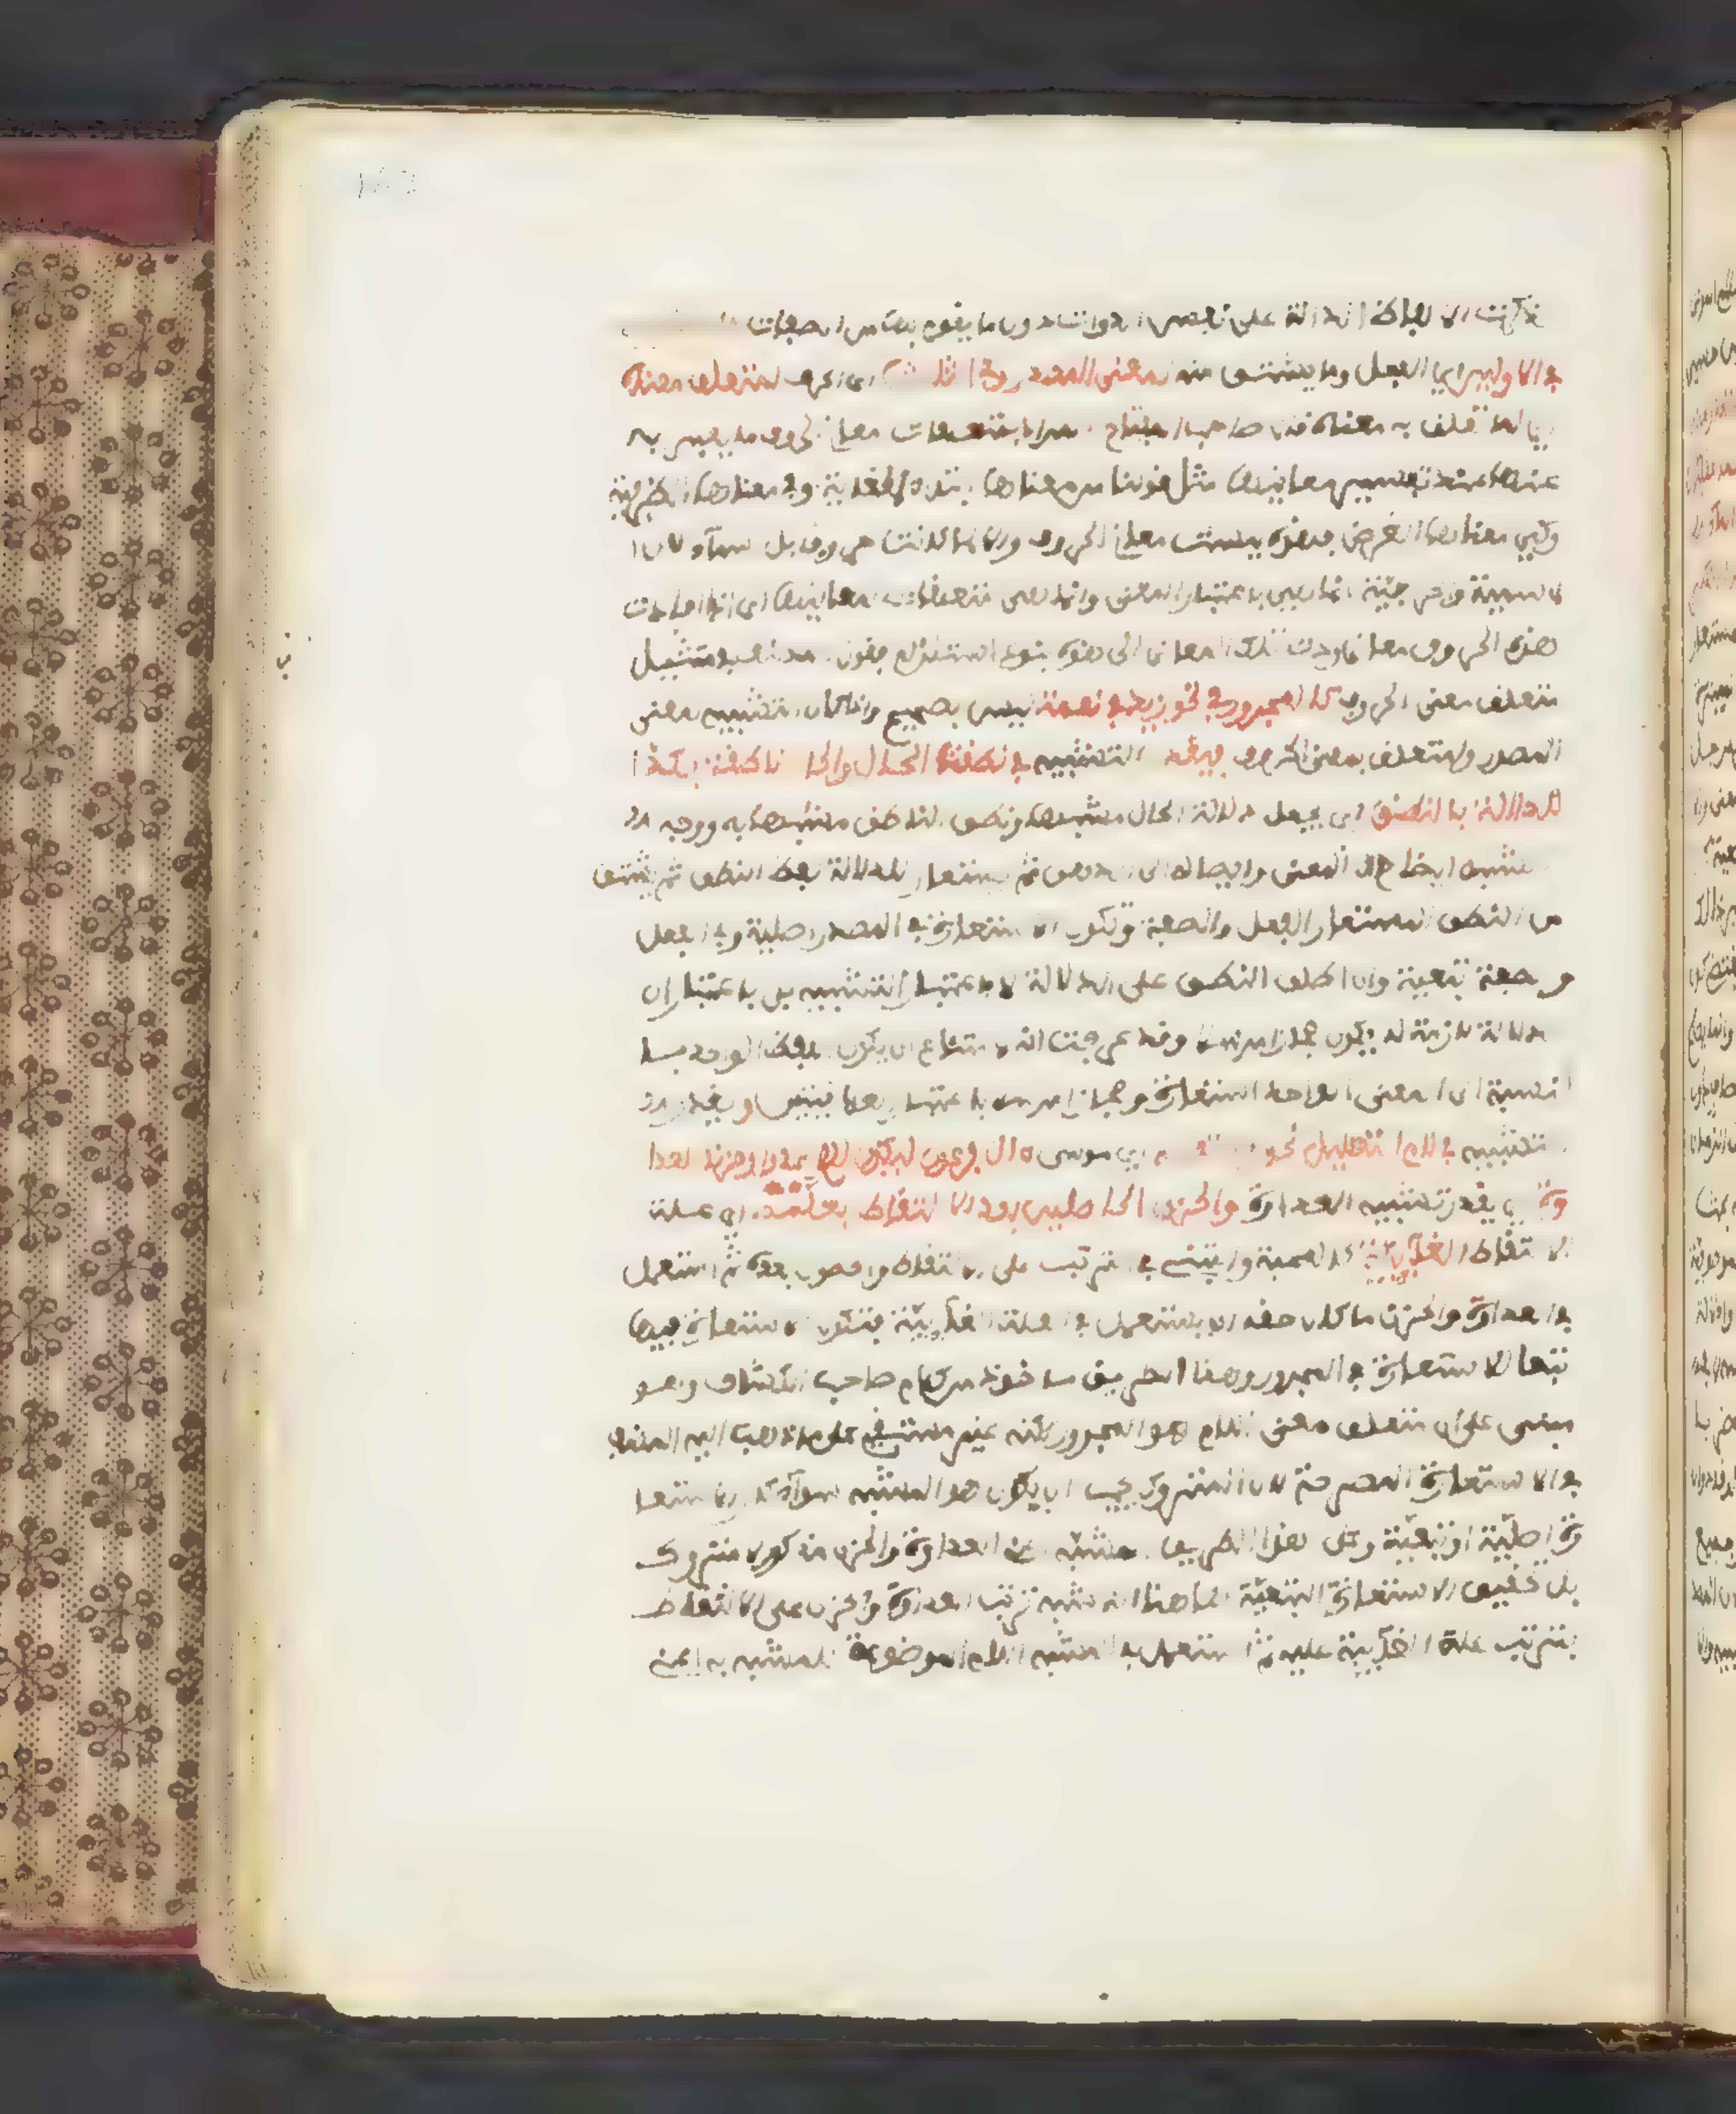 ذكرت الالفاظ الدالة على نفس الذوات دون ما يقوم بها من الصفات
في الاولين اي الفعل وما يشتق منه لمعنى المصدر وفي الثالث اي الحرف لمتعلق معناه
اي لما تعلق به معناه قال صاحب المفتاح المراد بمتعلقات معاني الحروف ما يعبر به
عنها عند تفسير معانيها مثل قولنا من معناها ابتداء الغاية وفي معناها الظرفية
وكي معناها الغرض فهذه ليست معاني الحروف والا لما كانت حروفا بل اسماء لان ا
لاسمية والحرفية انما هي باعتبار المعنى وانما هي متعلقات لمعانيها اي اذا افادت
هذه الحروف معاني ردت تلك المعاني الى هذه بنوع استلزام فقول المصنف في تمثيل
متعلق معنى الحرف كالمجرور في نحو زيد في نعمة ليس بصحيح واذا كان التشبيه لمعنى
المصدر ولمتعلق معنى الحرف فيقدر التشبيه في نطقت الحال والحال ناطقة بكذا
للدلالة بالنطق اي يجعل دلالة الحال مشبها ونطق الناطق مشبها به ووجه ال
تشبيه ايضاح المعنى وايصاله الى الذهن ثم يستعار للدلالة لفظ النطق ثم يشتق
من النطق المستعار الفعل والصفة وتكون الاستعارة في المصدر اصلية وفي الفعل
والصفة تبعية وان اطلق النطق على الدلالة لا باعتبار التشبيه بل باعتبار ان
الدلالة لازمة له يكون مجازا مرسلا وقد عرفت انه لا امتناع ان يكون اللفظ الواحد با
لنسبة الى المعنى الواحد استعارة ومجازا مرسلا باعتبار العلاقتين ويقدر ال
تشبيه في لام التعليل نحو فالتقطه اي موسى ءال فرعون ليكون لهم عدوا وحزنا للعدا
وة اي يقدر تشبيه العداوة والحزن الحاصلين بعد الالتقاط بعلته اي علة
الالتقاط الغائية كالمحبة والتبني في الترتب على الالتقاط والحصول بعده ثم استعمل
في العداوة والحزن ما كان حقه ان يستعمل في العلة الغائية فتكون الاستعارة فيها
تبعا للاستعارة في المجرور وهذا الطريق ماخوذ من كلام صاحب الكشاف وهو
مبني على ان متعلق معنى اللام هو المجرور لكنه غير مستقيم على مذهب اليه المصنف
في الاستعارة المصرحة لان المتروك يجب ان يكون هو المشبه سواء كان الاستعا
رة اصلية او تبعية وعلى هذا الطريق المشبه اعني العداوة والحزن مذكور لا متروك
بل تحقيق الاستعارة التبعية هاهنا انه شبه ترتب العداوة والحزن على الالتقاط
بترتب علته الغائية عليه ثم استعمل في المشبه اللام الموضوعة للمشبه به اعني